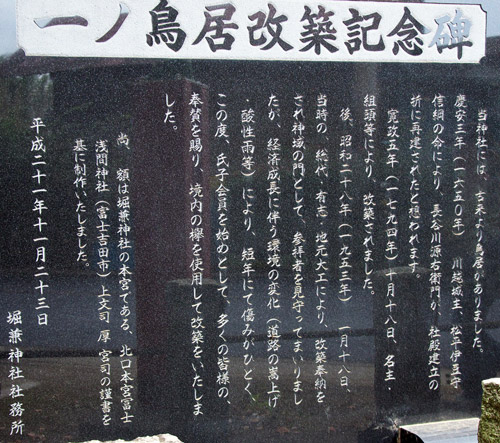 一ノ鳥居改築記念碑
当神社には、古来より鳥居がありました。
慶安三年（一六五〇年）　川越城主、松平伊豆守
信綱の命により、長谷川源右衛門が、社殿建立の
折に再建されたと想われます。
寛政五年（一七九四年）十月十八日、名主・
組頭等により、改築されました。
後、昭和二十八年（一九五三年）　一月十八日、
当時の、総代・有志・地元大工により、改築奉納を
され神域の門として、参拝者を見守ってまいりまし
たが、経済成長に伴う環境の変化（道路の嵩上げ
・酸性雨等）により、短年にて傷みがひどく、
この度、氏子会員を始めとして、多くの皆様の、
奉賛を賜り、境内の欅を使用して改築をいたしま
した。
尚、額は堀兼神社の本宮である、北口本宮冨士
浅間神社（富士吉田市）上文司 厚 宮司の謹書を
基に制作いたしました。
平成二十一年十一月二十三日
堀兼神社社務所